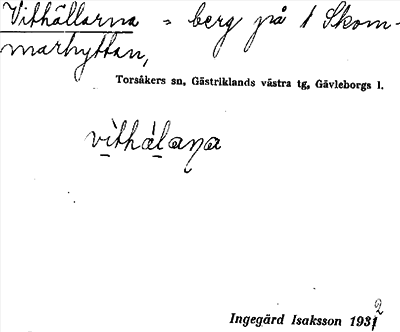 Vithällarna = berg på 1 Skom-
marhyttan,
Torsåkers sn, Gästriklands västra tg, Gävleborgs l.
vìthálaṇa
Ingegärd Isaksson 1932